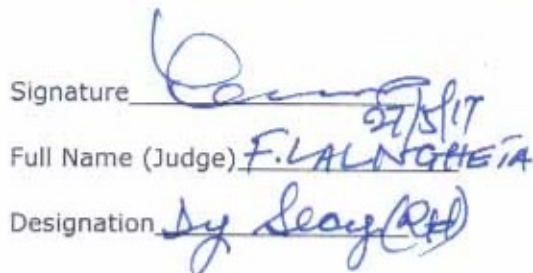 Signature
27/5/17
Full Name (Judge) F. LALNGHETA
Designation Dy Secy (RH)